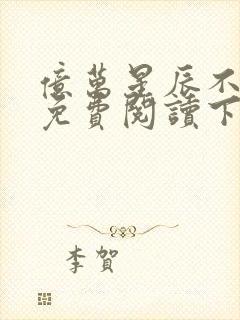 億萬星辰不
免費閱讀下
李賀